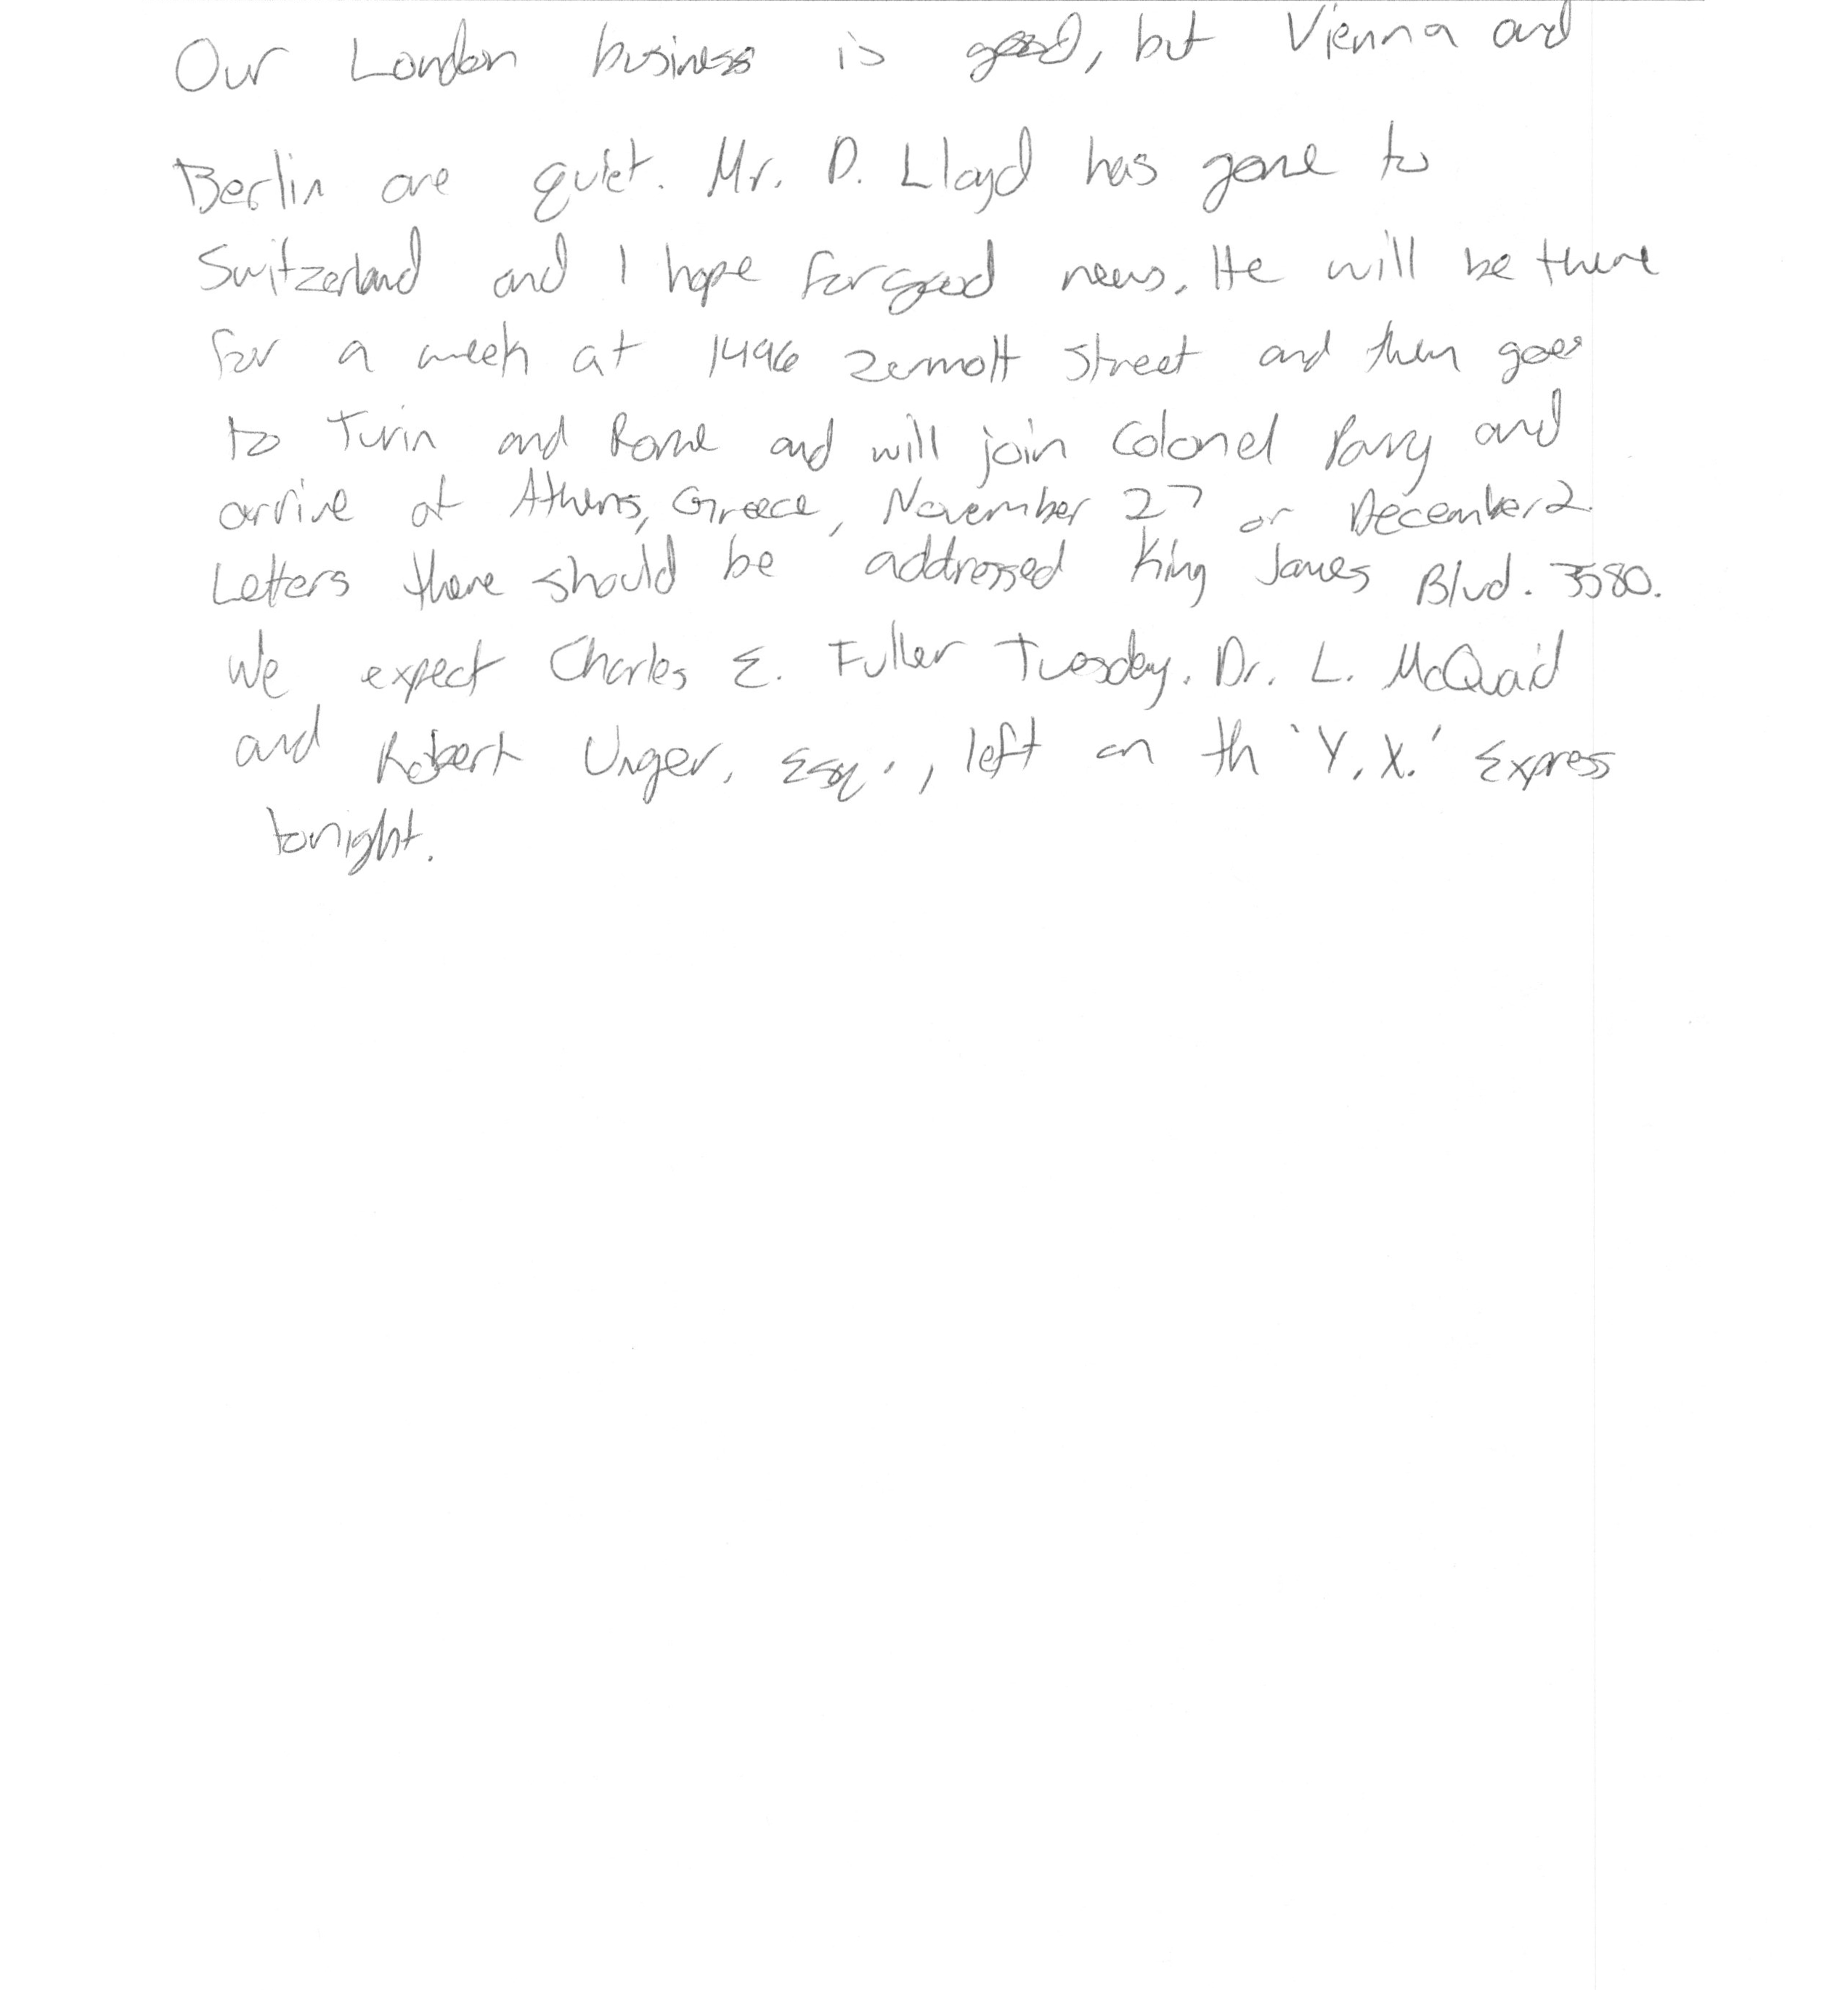 Our London business is good, but Vienna and
Berlin are quiet. Mr. D. Lloyd has gone to
Switzerland and I hope for good news. He will be there
for a week at 1496 Zermott Street and then goes
to Turin and Rome and will join Colonel Parry and
arrive at Athens, Greece, November 27 or December 2.
Letters there should be addressed King James Blvd. 3580.
We expect Charles E. Fuller Tuesday. Dr. L. McQuaid
and Robert Unger, Esq., left on th 'Y.X.' Express
tonight.